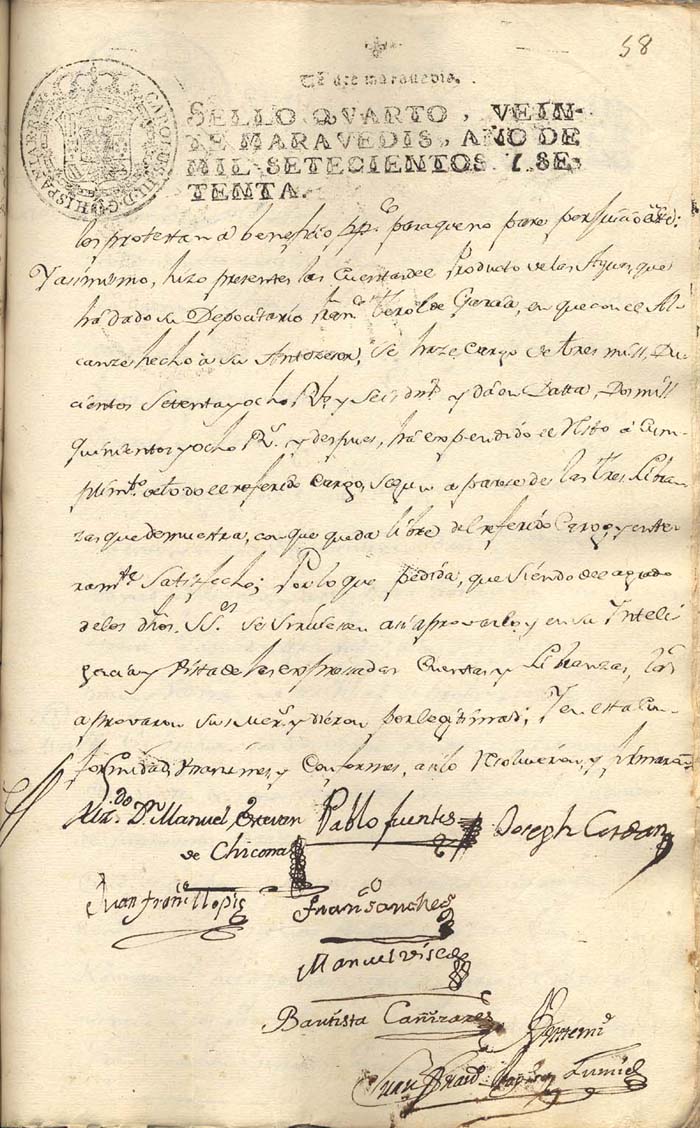 58
SELLO QVARTO, VEIN-
TE MARAVEDIS, AÑO DE
MIL SETECIENTOS Y SE-
TENTA.
CAROLUS III D G HISPANIAR REX
los protestan a beneficio para que no pare perjuicio
Y asimismo, hizo presentes las Cuentas del Producto de las Aguas, que
ha dado su Depocitario Fran.co Terol de Garada, en que con el Al-
canze hecho a su Antezesor, se haze Cargo de tres mill, Du-
cientos Setenta y ocho R.s y Seis din.s y da en Datta, Dos mill
quinientos y ocho R.s y despues, ha expendido el Resto a Cum-
plim.to de todo el referido Cargo, Segun a parese de las tres Libran-
zas que demuestra, con que queda libre del referido Cargo, y ente-
ram.te Satisfecho; Por lo que pedida, que Siendo del agrado
de los dhos. SS.es Se Sirviesen aprovarlo, y en su Inteli-
gencia y Vista de las expresadas Cuentas y Libranzas, las
aprovaron sus mer.s y dieron por legitimas; Y en esta Con-
formidad, Unanimes, y Conformes, asi lo Resolvieron, y firmaron
Liz.do D.n Manuel Estevan
de Chicona
Pablo fuentes
Joseph Cerdan
Juan Fran.co Llopis
Fran.co Sanches
Manuel
Bautista Cañizares
Antemi
Juan